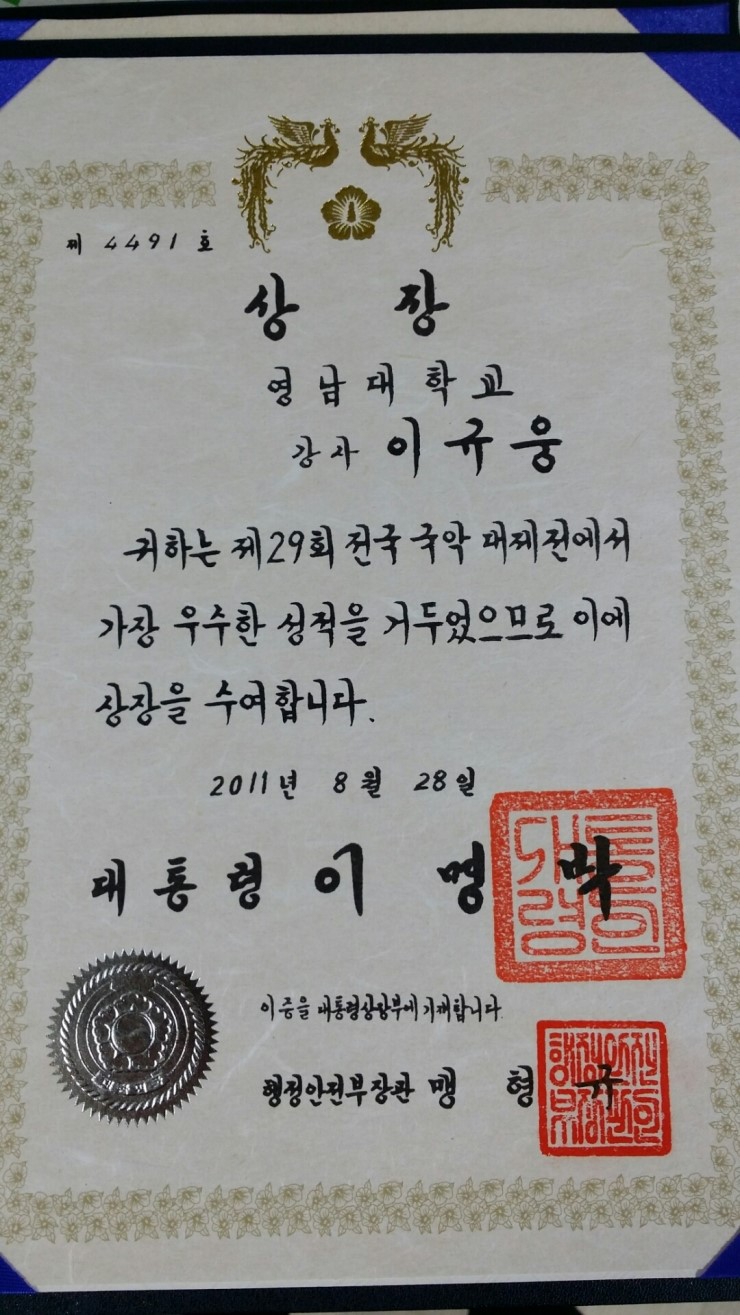 제 4491 호
상 장
영남대학교
강사 이규웅
귀하는 제29회 전국 국악 대제전에서
가장 우수한 성적을 거두었으므로 이에
상장을 수여합니다.
2011년 8월 28일
대통령 이명박
이 증을 대통령상장부에 기재합니다
행정안전부장관 맹형규